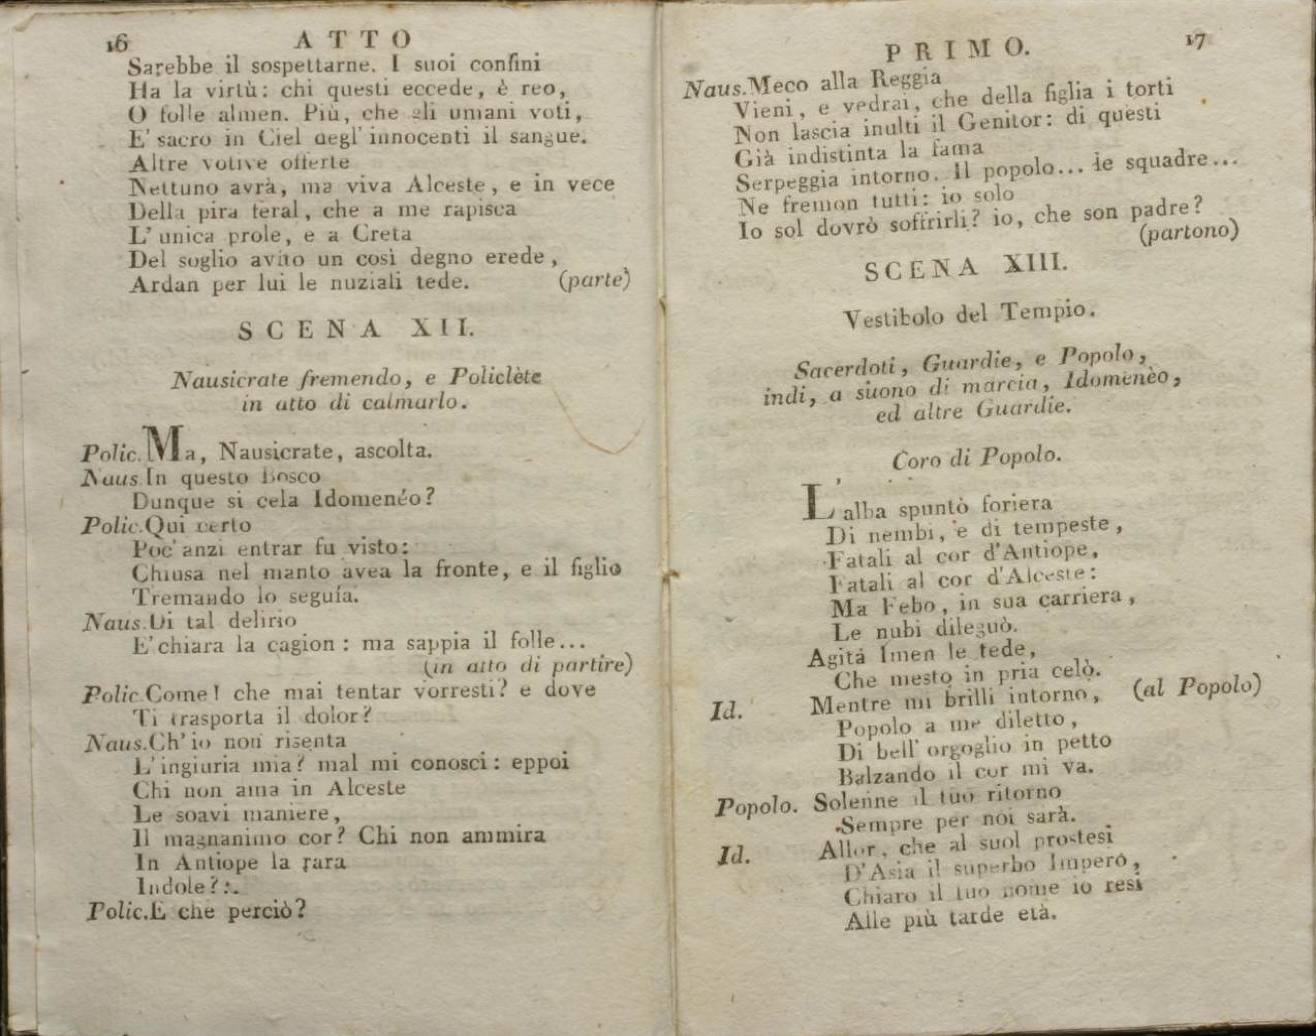 16
ATTO
Sarebbe il sospettarne. I suoi confini
Ha la virtù: chi questi eccede, è reo,
O folle almen. Più, che gli umani voti,
E' sacro in Ciel degl' innocenti il sangue.
Altre votive offerte
Nettuno avrà, ma viva Alceste, e in vece
Della pira feral, che a me rapisca
L' unica prole, e a Creta
Del soglio avito un così degno erede,
Ardan per lui le nuziali tede. (parte)
SCENA XII.
Nausicrate fremendo, e Policlète
in atto di calmarlo.
Polic. Ma, Nausicrate, ascolta.
Naus. In questo Bosco
Dunque si cela Idomenéo?
Polic. Qui certo
Poc' anzi entrar fu visto:
Chiusa nel manto avea la fronte, e il figlio
Tremando lo seguía.
Naus. Di tal delirio
E' chiara la cagion: ma sappia il folle...
(in atto di partire)
Polic. Come! che mai tentar vorresti? e dove
Ti trasporta il dolor?
Naus. Ch' io non risenta
L' ingiuria mia? mal mi conosci: eppoi
Chi non ama in Alceste
Le soavi maniere,
Il magnanimo cor? Chi non ammira
In Antiope la rara
Indole?..
Polic. E che perciò?
PRIMO.
17
Naus. Meco alla Reggia
Vieni, e vedrai, che della figlia i torti
Non lascia inulti il Genitor: di questi
Già indistinta la fama
Serpeggia intorno. Il popolo... le squadre...
Ne fremon tutti: io solo
Io sol dovrò soffrirli? io, che son padre?
(partono)
SCENA XIII.
Vestibolo del Tempio.
Sacerdoti, Guardie, e Popolo,
indi, a suono di marcia, Idomenèo,
ed altre Guardie.
Coro di Popolo.
L'alba spuntò foriera
Di nembi, e di tempeste,
Fatali al cor d'Antiope,
Fatali al cor d'Alceste:
Ma Febo, in sua carriera,
Le nubi dileguò.
Agita Imen le tede,
Che mesto in pria celò.
Id. Mentre mi brilli intorno, (al Popolo)
Popolo a me diletto,
Di bell' orgoglio in petto
Balzando il cor mi va.
Popolo. Solenne il tuo ritorno
Sempre per noi sarà.
Id. Allor, che al suol prostesi
D'Asia il superbo Impero,
Chiaro il tuo nome io resi
Alle più tarde età.